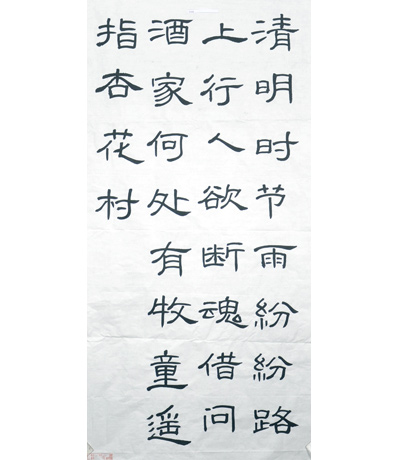 清明时节雨紛紛路
上行人欲断魂借问
酒家何处有牧童遥
指杏花村